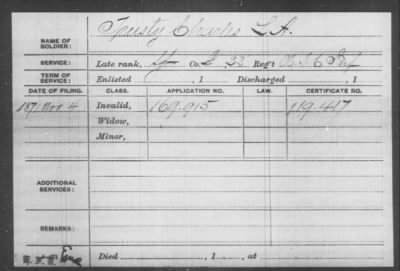 NAME OF SOLDIER: Trusty Charles L. A.
SERVICE: Late rank, Co. 22 Reg't U.S.C. Inf
TERM OF SERVICE: Enlisted , 1 Discharged , 1
DATE OF FILING. CLASS. APPLICATION NO. LAW. CERTIFICATE NO.
1871 Nov 4 Invalid, 169.915 119.417
Widow,
Minor,
ADDITIONAL SERVICES:
REMARKS:
Died , 1 , at